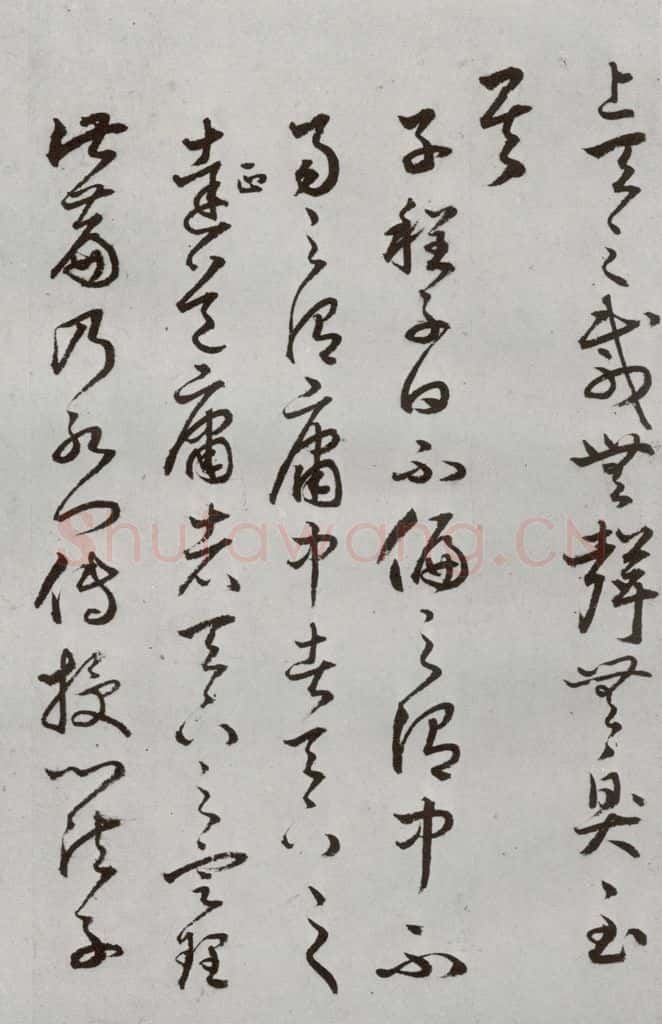 上天之載無聲無臭至
矣
子程子曰不偏之謂中不
易之謂庸中者天下之
達道庸者天下之定理
正
此篇乃孔門傳授心法子
Shufawang.CN